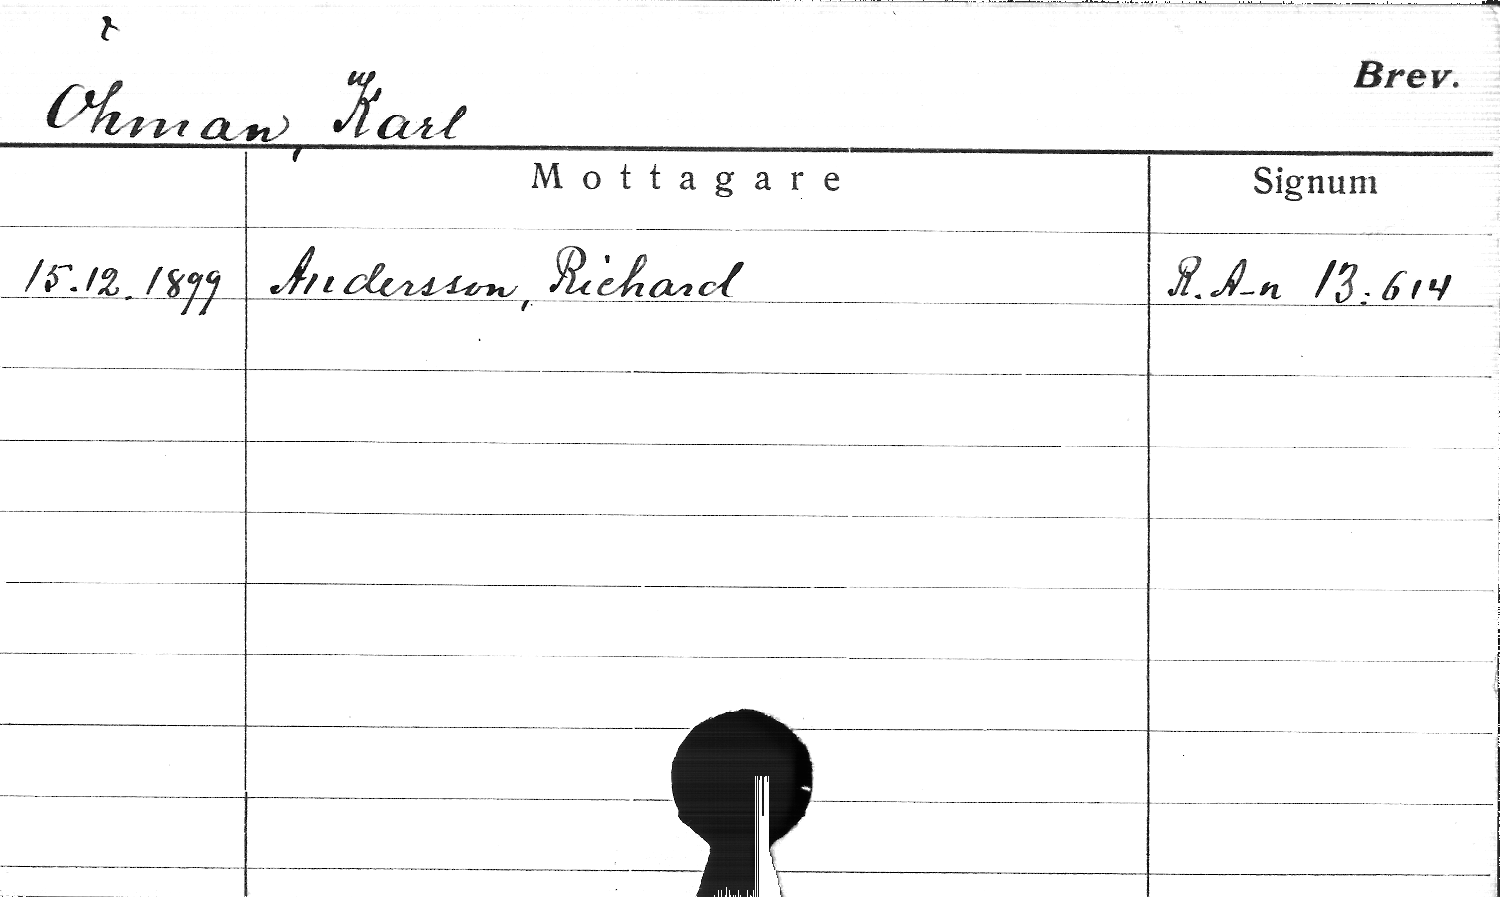 Brev.
Öhman, Karl
Mottagare Signum
15.12.1899 Andersson, Richard R. A-n 13:614